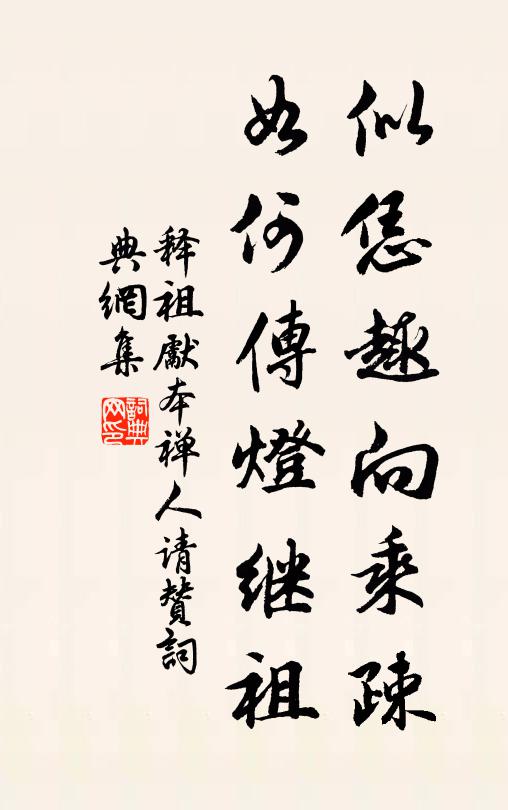 似恁趣向乘疎
如何傳燈继祖
释祖獻本禅人请赞詞
典網集
詞典网印